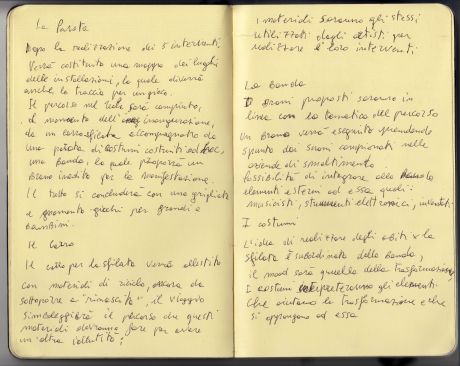 La Parata
Dopo la realizzazione dei 5 interventi
verrà costituita una mappa dei luoghi
delle installazioni, la quale diverrà
anche, la traccia per un gioco.
Il percorso nel quale sarà compiuto,
il momento dell' inaugurazione,
da un carro sfilata accompagnato da
una parata di costumi costruiti ad hoc,
una banda, la quale proporrà un
brano inedito per la manifestazione.
Il tutto si concluderà con una grigliata
e momento giochi per grandi e
bambini.
Il Carro
Il carro per la sfilata verrà allestito
con materiali di riciclo, ancora da
sottoporre a "rinascita", il viaggio
simboleggierà il percorso che questi
materiali dovranno fare per avere
un'altra identità;
I materiali saranno gli stessi
utilizzati dagli artisti per
realizzare i loro interventi
La Banda
I brani proposti saranno in
linea con la tematica del percorso
Un brano verrà eseguito prendendo
spunto dai suoni campionati nelle
aziende di smaltimento
Possibilità di integrare alla banda
elementi esterni ad essa quali
musicisti, strumenti elettronici, inventati.
I costumi
L'idea di realizzare degli abiti x la
sfilata è subordinata della Banda,
il mood sarà quello della trasformazione,
I costumi interpreteranno gli elementi
che aiutano la trasformazione e che
si oppongono ad essa